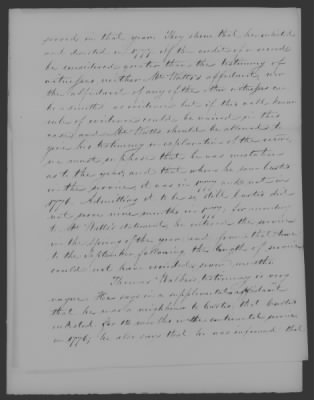 served in that year. They show that he enlisted
and deserted in 1777. If the credit of a record
be considered greater than the testimony of
witnesses neither Mr Watts's affidavit, nor
the affidavit of any of the other witnesses can
be admitted as evidence but if this well known
rule of evidence could be waived in this
case and Mr Watts should be allowed to
give his testimony in explanation of the
we must suppose that he was mistaken
as to the year, and that when he saw
in the service, it was in 1777 and not in
1776. Admitting it to be so, still did
not serve nine months in 1777, for according
to Mr Watts's statement he entered the service
in the Spring of the year, and from that time
to the September following the length of service
could not have exceeded seven months.
Thomas testimony is very
vague. He says in a supplemental affidavit
that he was a neighbour to that
enlisted for 12 months in the continental service
in 1776; he also says that he was informed that